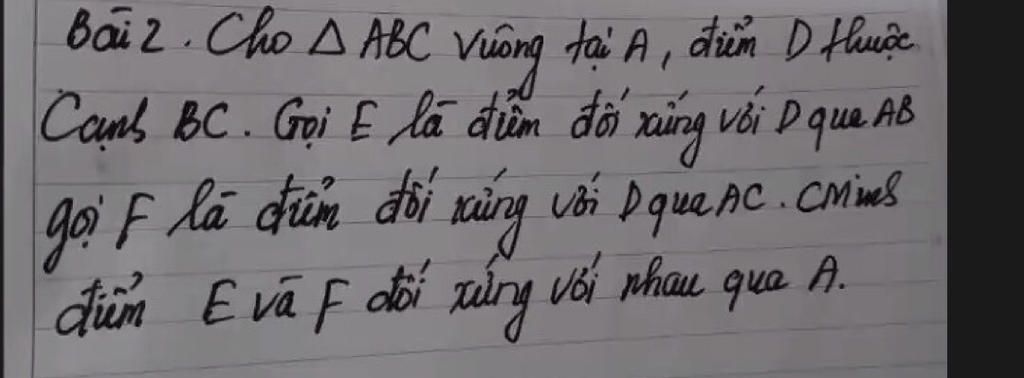 Bài 2. Cho △ ABC vuông tại A, điểm D thuộc
Cạnh BC. Gọi E là điểm đối xứng với D qua AB
gọi F là điểm đối xứng với D qua AC. CMinh
điểm E và F đối xứng với nhau qua A.